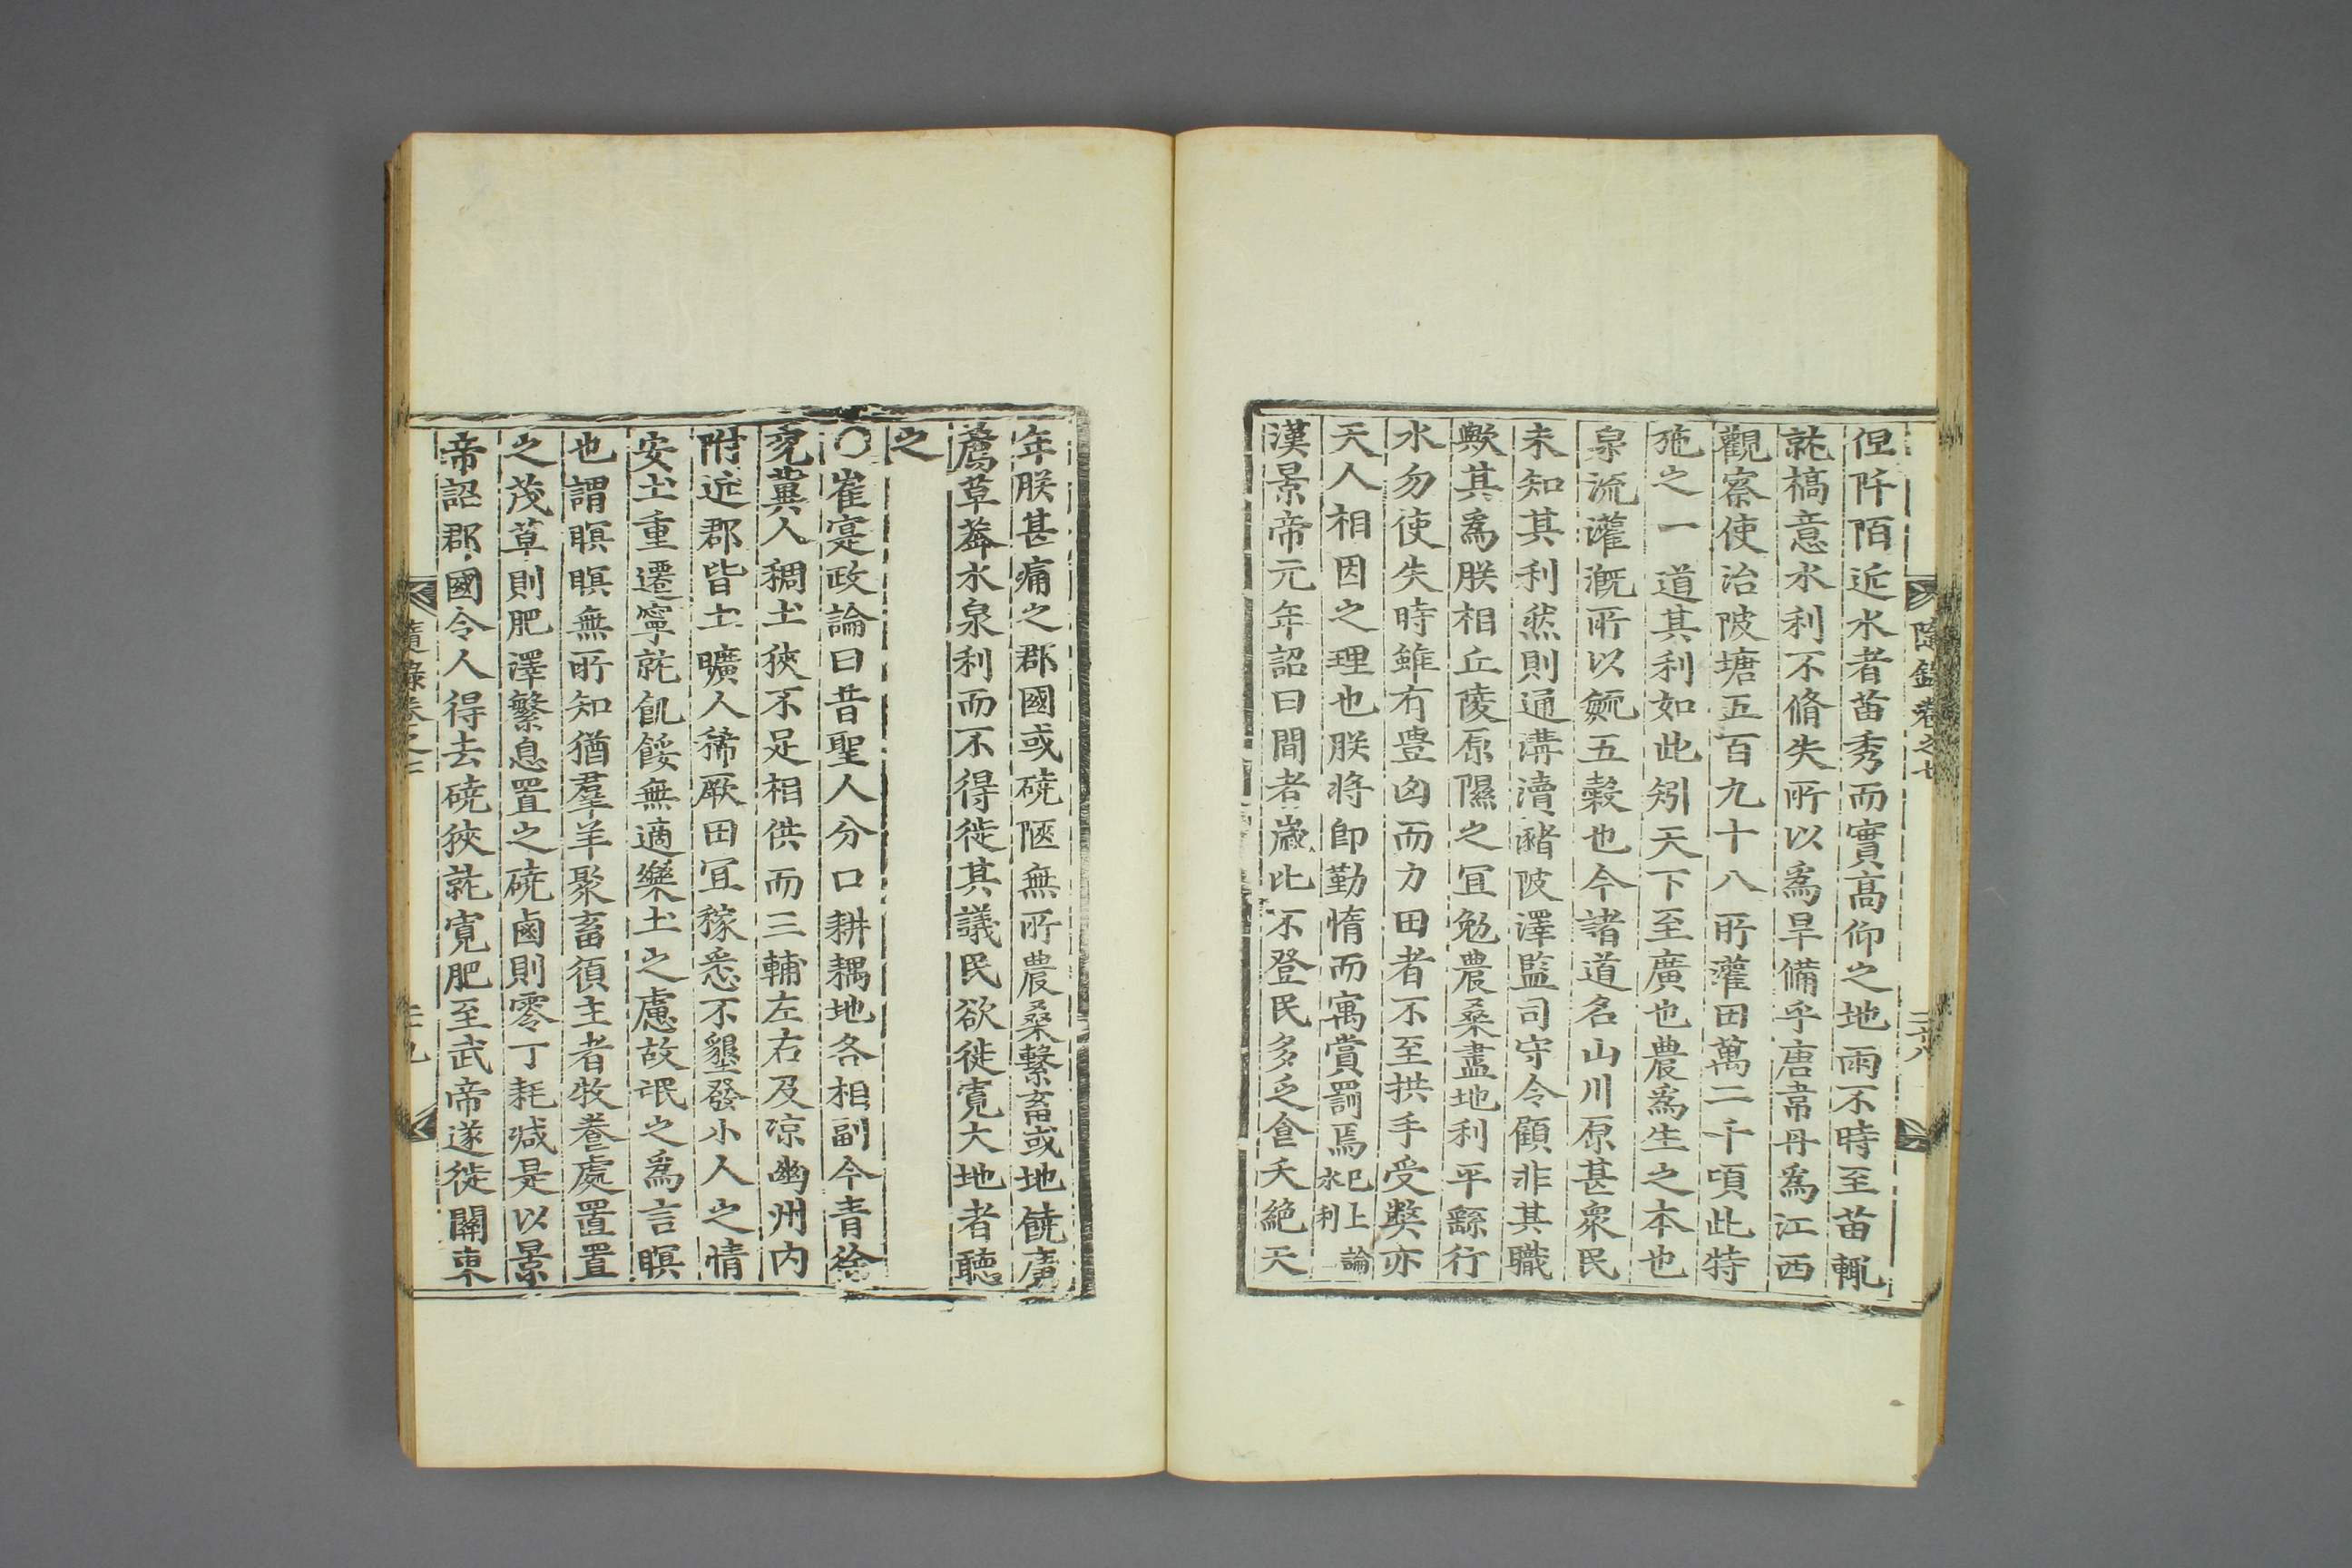 但阡陌近水者苗秀而實高仰之地雨不時至苗輒
就槁意水利不脩失所以爲旱備乎唐韋丹爲江西
觀察使治陂塘五百九十八所灌田萬二千頃此特
施之一道其利如此矧天下至廣也農爲生之本也
泉流灌漑所以毓五穀也今諸道名山川原甚衆民
未知其利然則通溝瀆瀦陂澤監司守令顧非其職
歟其爲朕相丘陵原隰之宜勉農桑盡地利平繇行
水勿使失時雖有豊凶而力田者不至拱手受獘亦
天人相因之理也朕將卽勤惰而寓賞罰焉已上論
水利
漢景帝元年詔曰間者歲比不登民多乏食夭絶天
年朕甚痛之郡國或磽陿無所農桑繫畜或地饒廣
薦草莽水泉利而不得徙其議民欲徙寬大地者聽
之
〇崔寔政論曰昔聖人分口耕耦地各相副今青徐
兗冀人稠土狹不足相供而三輔左右及凉幽州内
附近郡皆土曠人稀厥田宜稼悉不墾發小人之情
安土重遷寧就飢餒無適樂土之慮故氓之爲言瞑
也謂瞑瞑無所知猶羣羊聚畜須主者牧養處置置
之茂草則肥澤繁息置之磽鹵則零丁耗減是以景
帝詔郡國令人得去磽狹就寬肥至武帝遂徙關東
隨錄卷之七
二十八